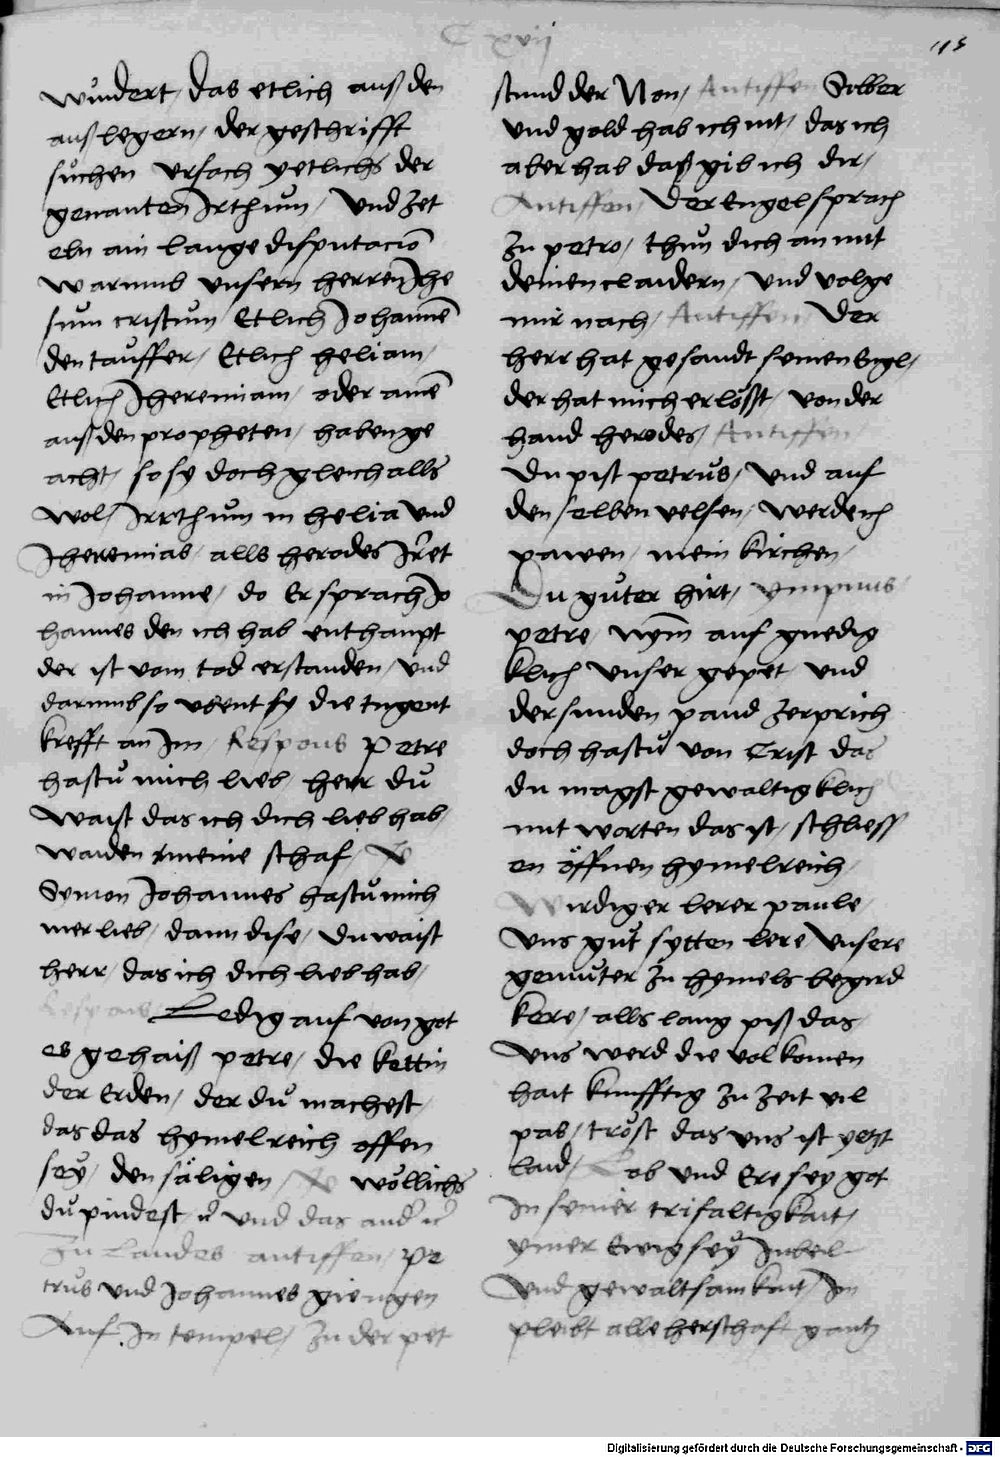 C xvij
115
wundert, das etlich auß den
außlegern, der geschrifft
sůchen ursach yetlichs der
genanten Irthum, Und zet
eln ain lange disputacio̅
warumb unsern herren Jhe
sum cristum Etlich Johanne̅
den tauffer, Etlich heliam,
Etlich Jheremiam, oder aine̅
auß den propheten, haben ge
acht, so sy doch gleich alls
wol, Irrthum in helia Und
Jheremias, alls herodes Jret
in Johanne, do Er sprach Jo
hannes den ich hab enthaupt
der ist vom tod erstanden, Und
darumb so ubent sy die tugent
krefft an Im, Respons Petre
hastu mich lieb, herr du
waist das ich dich lieb hab,
waiden meine schaf,
Symon Johannes hastu mich
mer lieb, dann dise, Du waist
herr, das ich dich lieb hab,
Respons, Ledig auf von got
es gehaiß petre, die kettin
der Erden, der du machest,
das das hymelreich offen
sey, den säligen, wöllichs
du pindest, und das ander
Zu Laudes antiffen, Pe
trus und Johannes giengen
Auf In tempel, zu der pet
stund der Non, Antiffen Silber
Und gold hab ich nit, das ich
aber hab daß gib ich dir,
Antiffen, Der Engel sprach
zu petro, thun dich an mit
deinen claidern, Und volge
mir nach, Antiffen, Der
herr hat gesandt seinen Engl,
der hat mich erlößt, von der
hand herodes, Antiffen,
Du pist petrus, Und auf
den selben velsen, werde ich
pawen, mein kirchen,
Du guter hirt, ympnus,
petre, nym auf gnedig
klich unser gepet, und
der sunden pand zerprich
doch hastu von Crist das
du magst gewaltigklich
mit worten das ist, schliess
en öffnen hymelreich,
Wirdiger lerer paule,
Uns gut sytten lere Unsere
gemuter zu hymels begird
kere, alls lang piß das,
Uns werd die volkomen
hait kunfftig zu zeit vil
pas, tröst das uns ist yetzt
laid, Lob und Ere sey got
In seiner trifaltigkait,
ymer Ewig sey Jubel
Und gewaltsamkait, Im
pleibt alle herschaft gantz
Digitalisierung gefördert durch die Deutsche Forschungsgemeinschaft - DFG